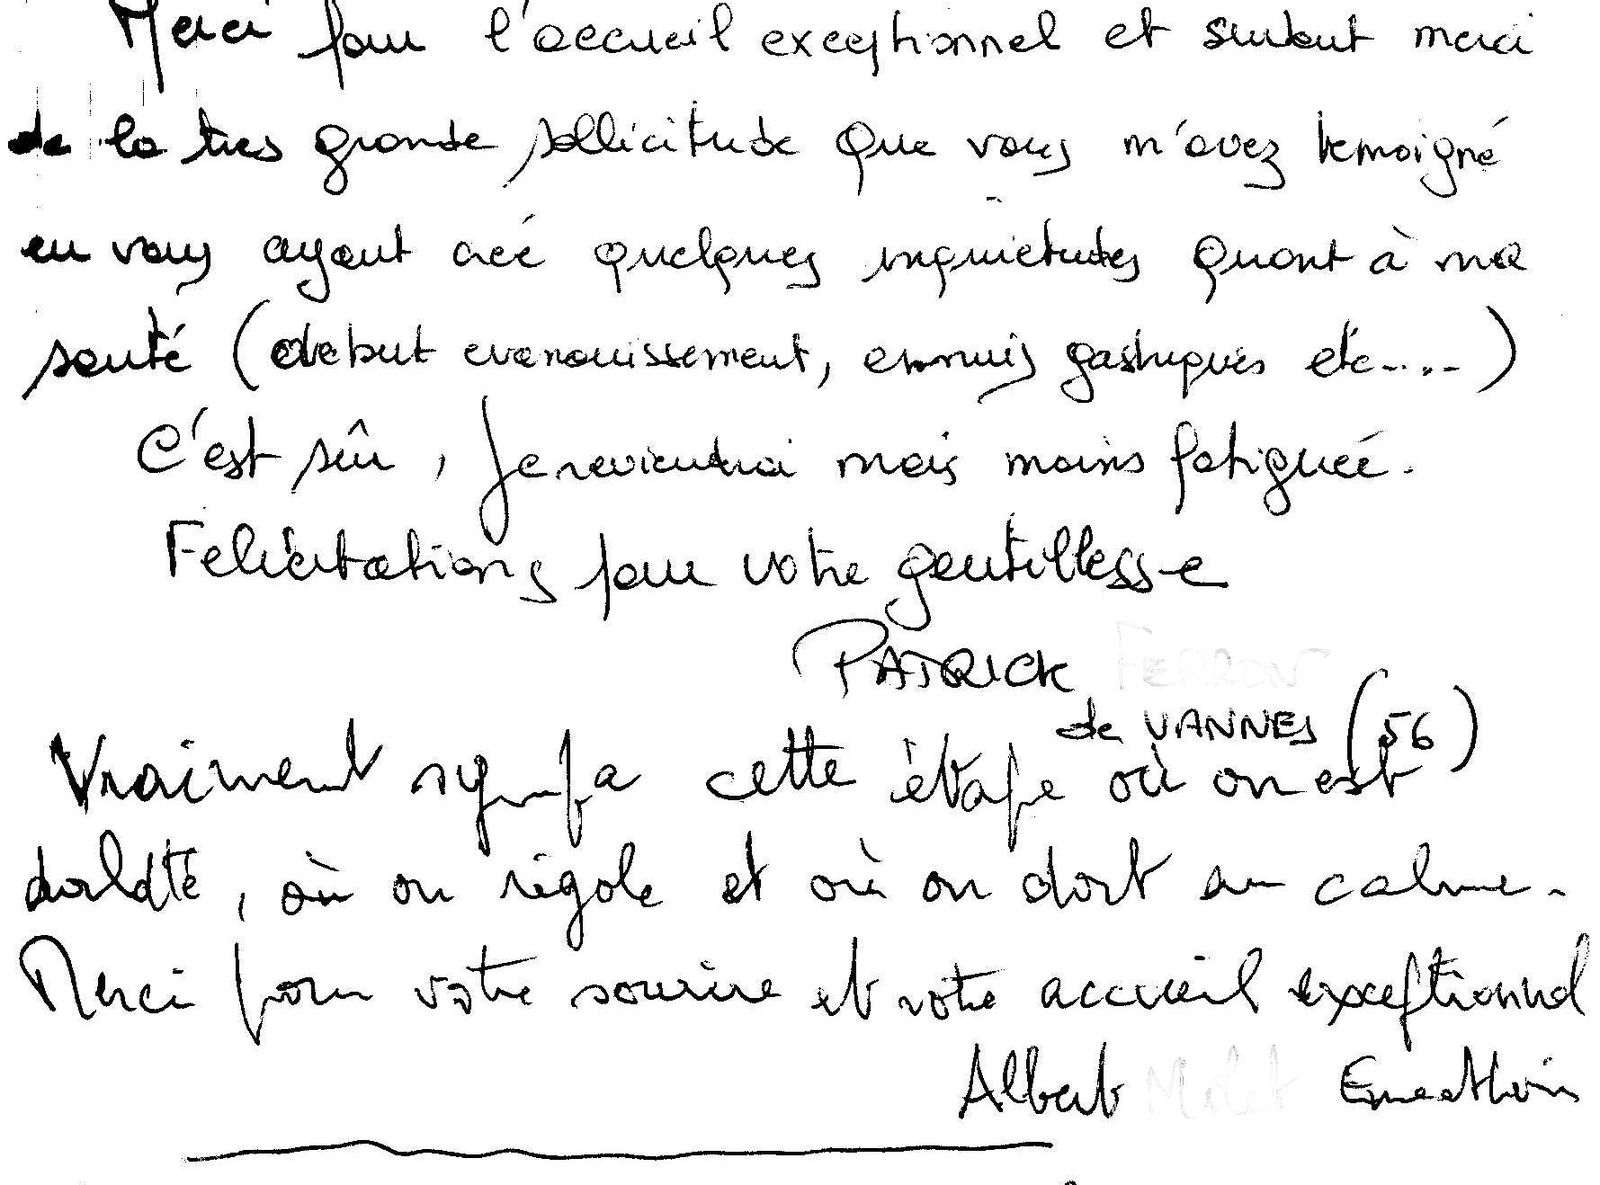 Merci pour l'accueil exceptionnel et surtout merci
de la tres grande sollicitude que vous m'avez temoigné
en vous ayant créé quelques inquietudes quant à ma
santé (debut evanouissement, ennuis gastriques etc....)
C'est sûr, je reviendrai mais moins fatiguée.
Felicitations pour votre gentillesse
PATRICK FERRON
de VANNES (56)
Vraiment sympa cette étape où on est
, où on rigole et où on dort au calme.
Merci pour votre sourire et votre accueil exceptionnel
Albert